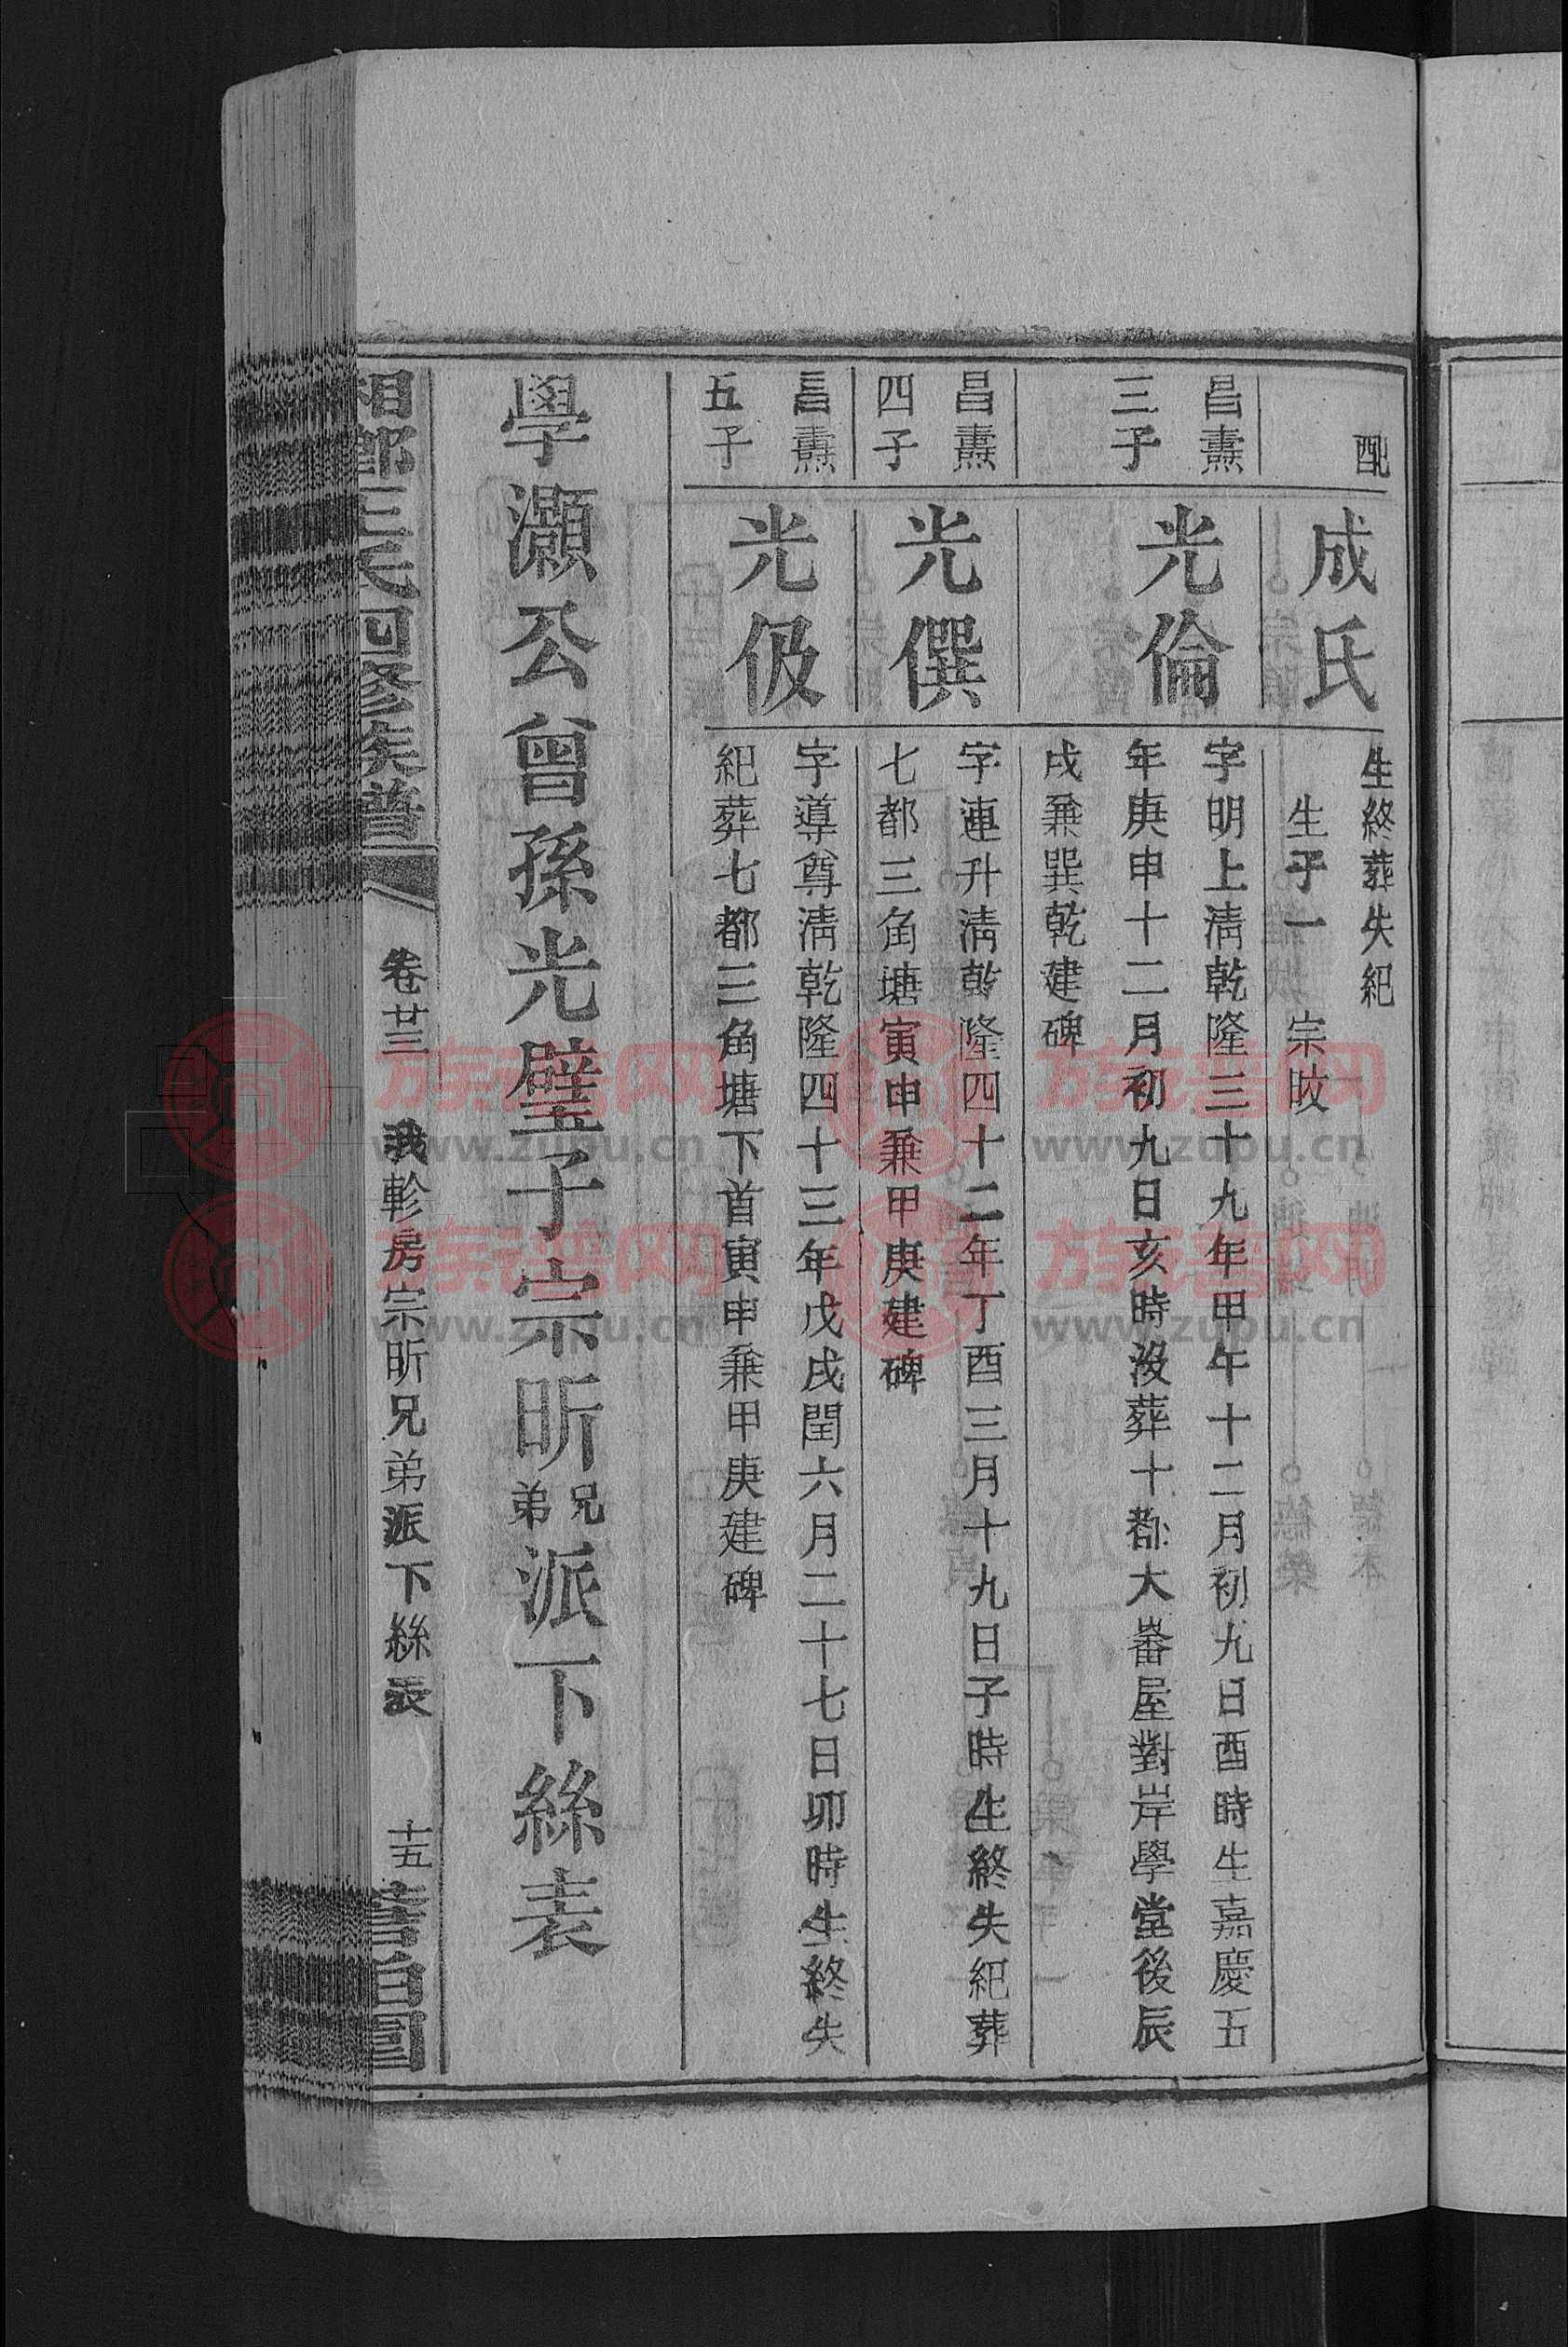 配
成氏
生終葬失紀
生子一 宗旼
昌燾
三子
光倫
字明上淸乾隆三十九年甲午十二月初九日酉時生嘉慶五
年庚申十二月初九日亥時沒葬十都大畬屋對岸學堂後辰
戌兼巽乾建碑
昌燾
四子
光僎
字連升淸乾隆四十二年丁酉三月十九日子時生終失紀葬
七都三角塘寅申兼甲庚建碑
昌燾
五子
光伋
字導尊淸乾隆四十三年戊戌閏六月二十七日卯時生終失
紀葬七都三角塘下首寅申兼甲庚建碑
學灝公曾孫光璧子宗昕兄弟派下絲表
王氏四修族譜
卷廿三
軫房宗昕兄弟派下絲表
十五
族譜网
www.zupu.cn
族譜网
www.zupu.cn
族譜网
www.zupu.cn
族譜网
www.zupu.cn